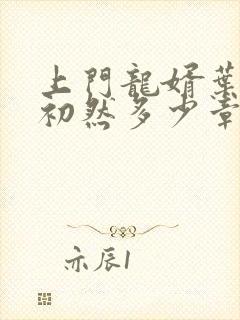 上門龍婿葉
初然多少章
亦辰1